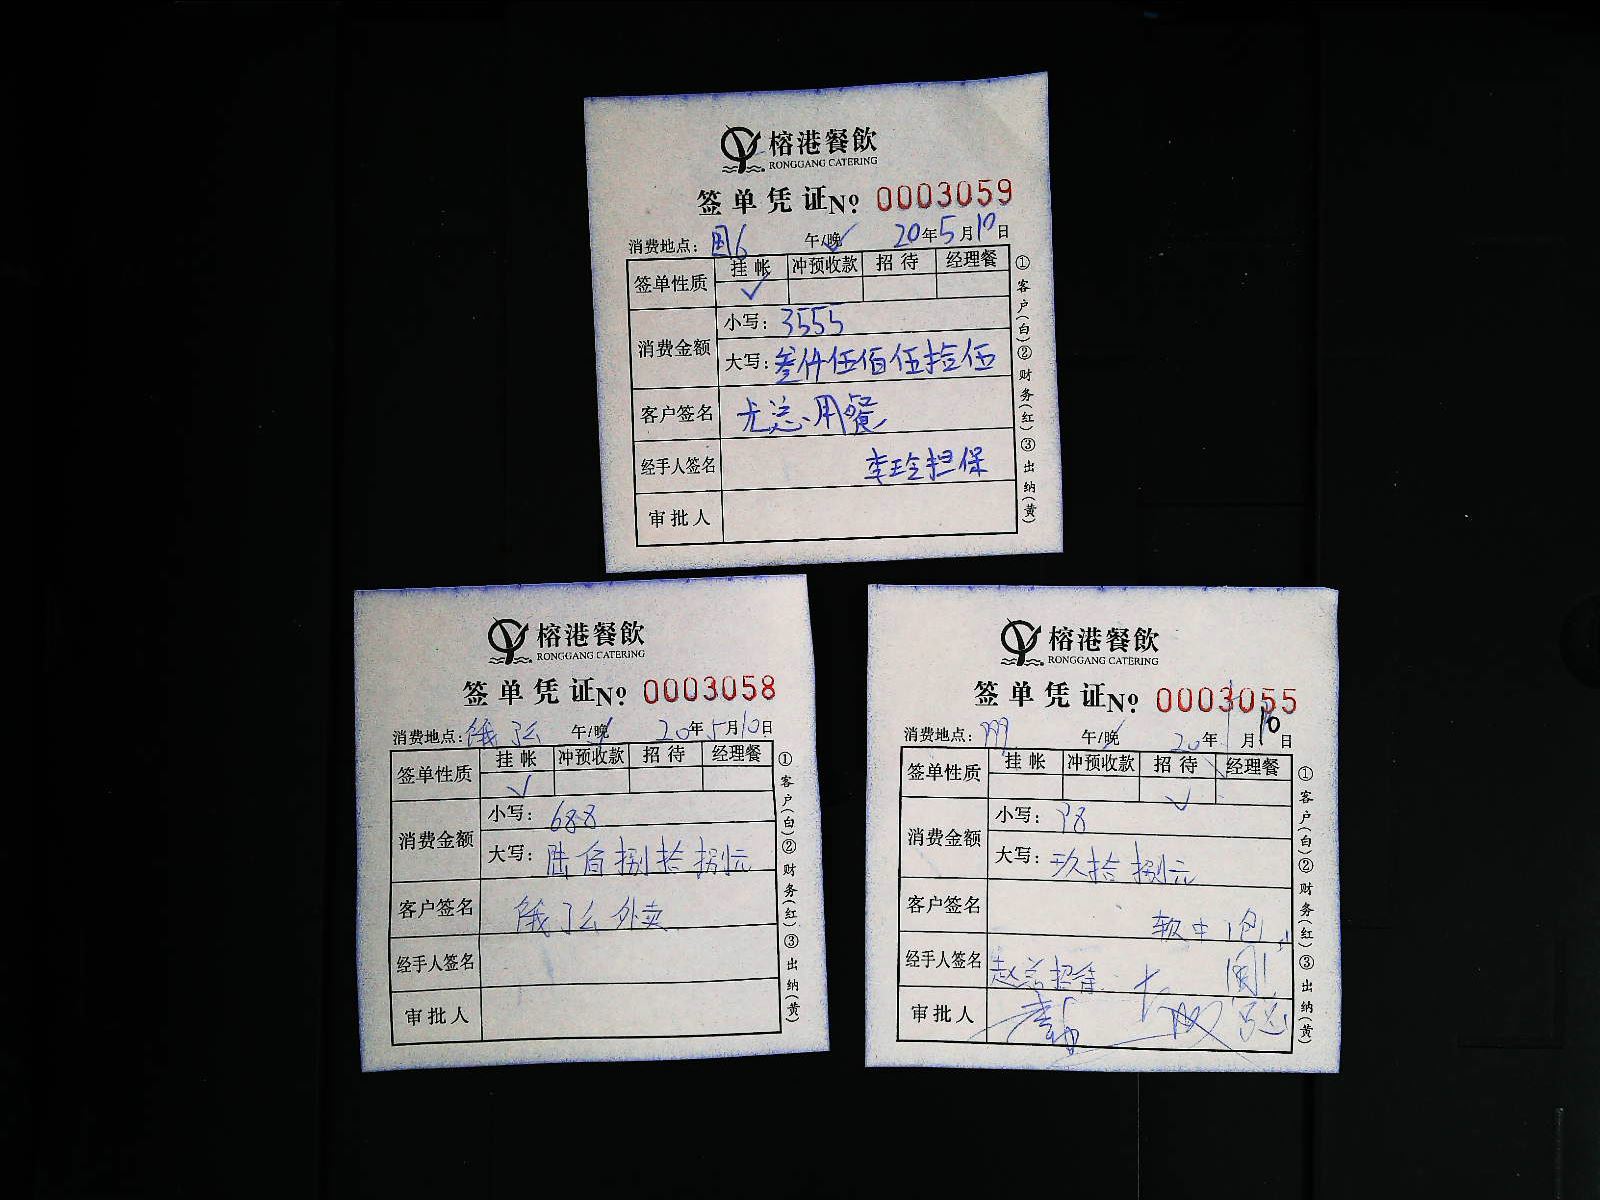 榕港餐飲
RONGGANG CATERING
签单凭证 No 0003059
消费地点: 国6 午/晚 ✓ 20年5月10日
签单性质 挂帐 冲预收款 招待 经理餐
✓
消费金额 小写: 3555
大写: 叁仟伍佰伍拾伍
客户签名 尤总用餐
经手人签名 李玲担保
审批人
①客户(白)②财务(红)③出纳(黄)
榕港餐飲
RONGGANG CATERING
签单凭证 No 0003058
消费地点: 饿了么 午/晚 20年5月10日
签单性质 挂帐 冲预收款 招待 经理餐
✓
消费金额 小写: 688
大写: 陆佰捌拾捌元
客户签名 饿了么外卖
经手人签名
审批人
①客户(白)②财务(红)③出纳(黄)
榕港餐飲
RONGGANG CATERING
签单凭证 No 0003055
消费地点: 午/晚 20年 月10日
签单性质 挂帐 冲预收款 招待 经理餐
✓
消费金额 小写: 98
大写: 玖拾捌元
客户签名 软中1包
经手人签名 赵总招待
审批人
①客户(白)②财务(红)③出纳(黄)